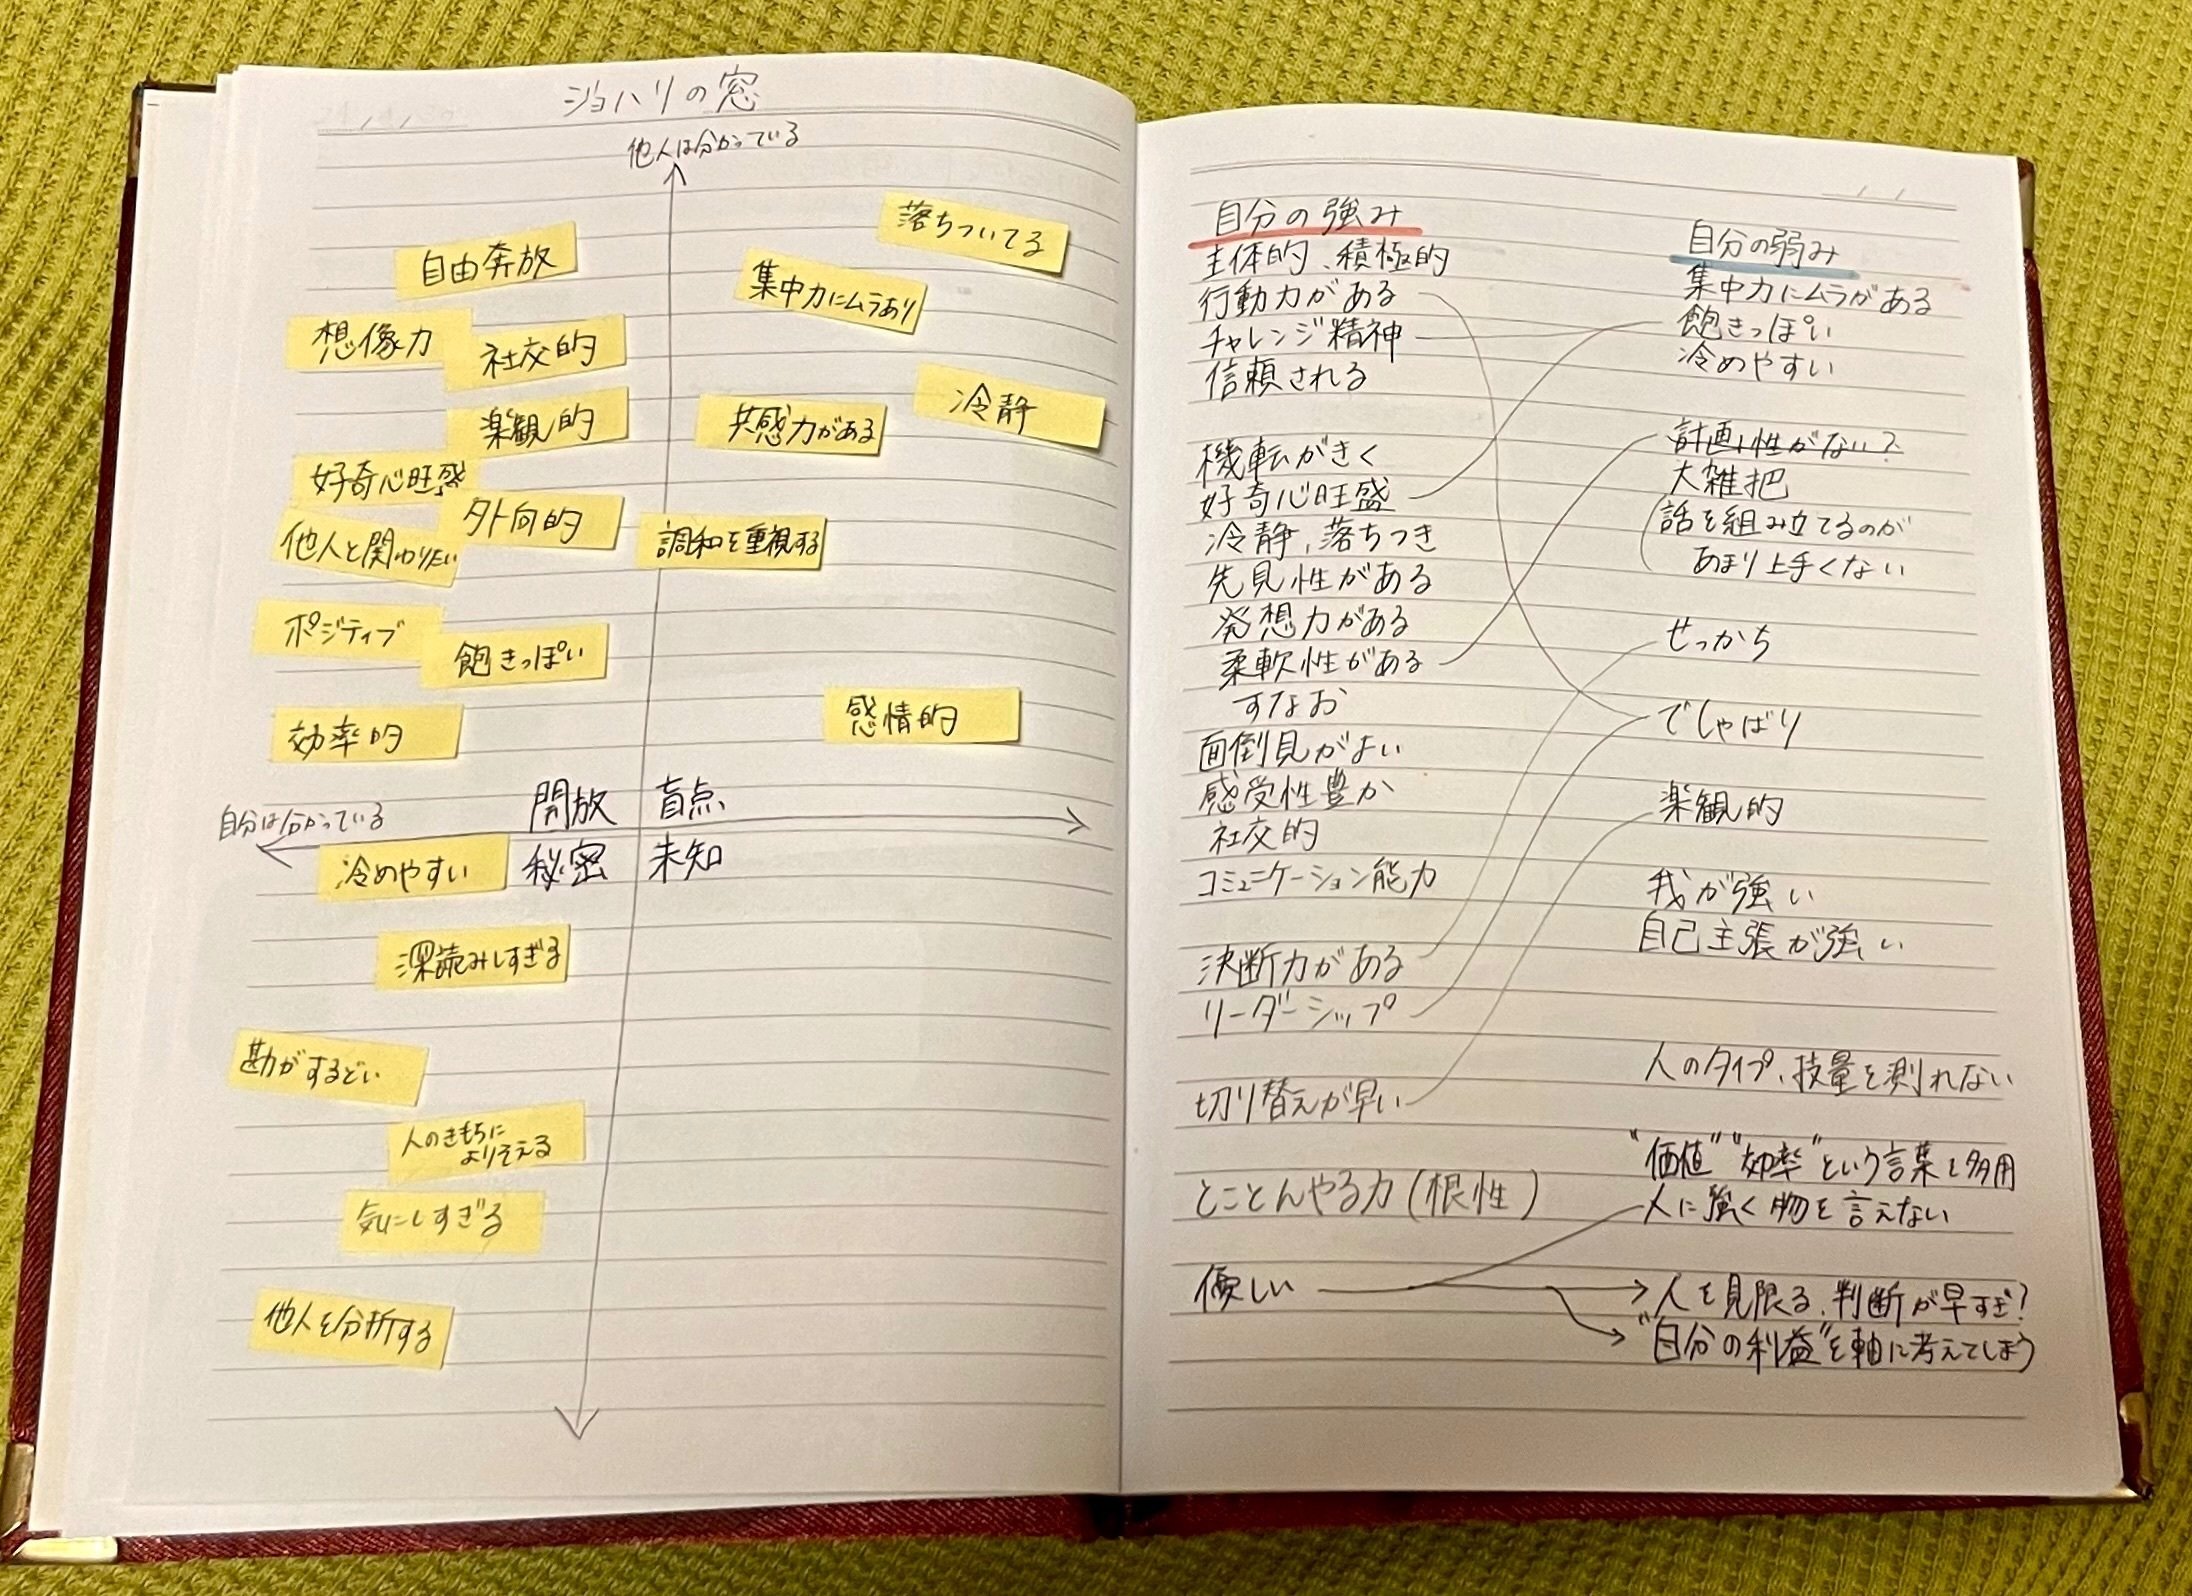 ジョハリの窓
他人は分かっている
自由奔放
想像力
社交的
楽観的
好奇心旺盛
外向的
他人と関わりたい
ポジティブ
飽きっぽい
効率的
落ちついてる
集中力にムラあり
共感力がある
冷静
調和を重視する
感情的
自分は分かっている
開放
盲点
秘密
未知
冷めやすい
深読みしすぎる
勘がするどい
人のきもちに
よりそえる
気にしすぎる
他人を分析する
自分の強み
主体的、積極的
行動力がある
チャレンジ精神
信頼される
機転がきく
好奇心旺盛
冷静、落ちつき
先見性がある
発想力がある
柔軟性がある
すなお
面倒見がよい
感受性豊か
社交的
コミュニケーション能力
決断力がある
リーダーシップ
切り替えが早い
とことんやる力(根性)
優しい
自分の弱み
集中力にムラがある
飽きっぽい
冷めやすい
計画性がない?
大雑把
話を組み立てるのが
あまり上手くない
せっかち
でしゃばり
楽観的
我が強い
自己主張が強い
人のタイプ、技量を測れない
"価値""効率"という言葉を多用
人に強く物を言えない
人を見限る、判断が早すぎ?
"自分の利益"を軸に考えてしまう